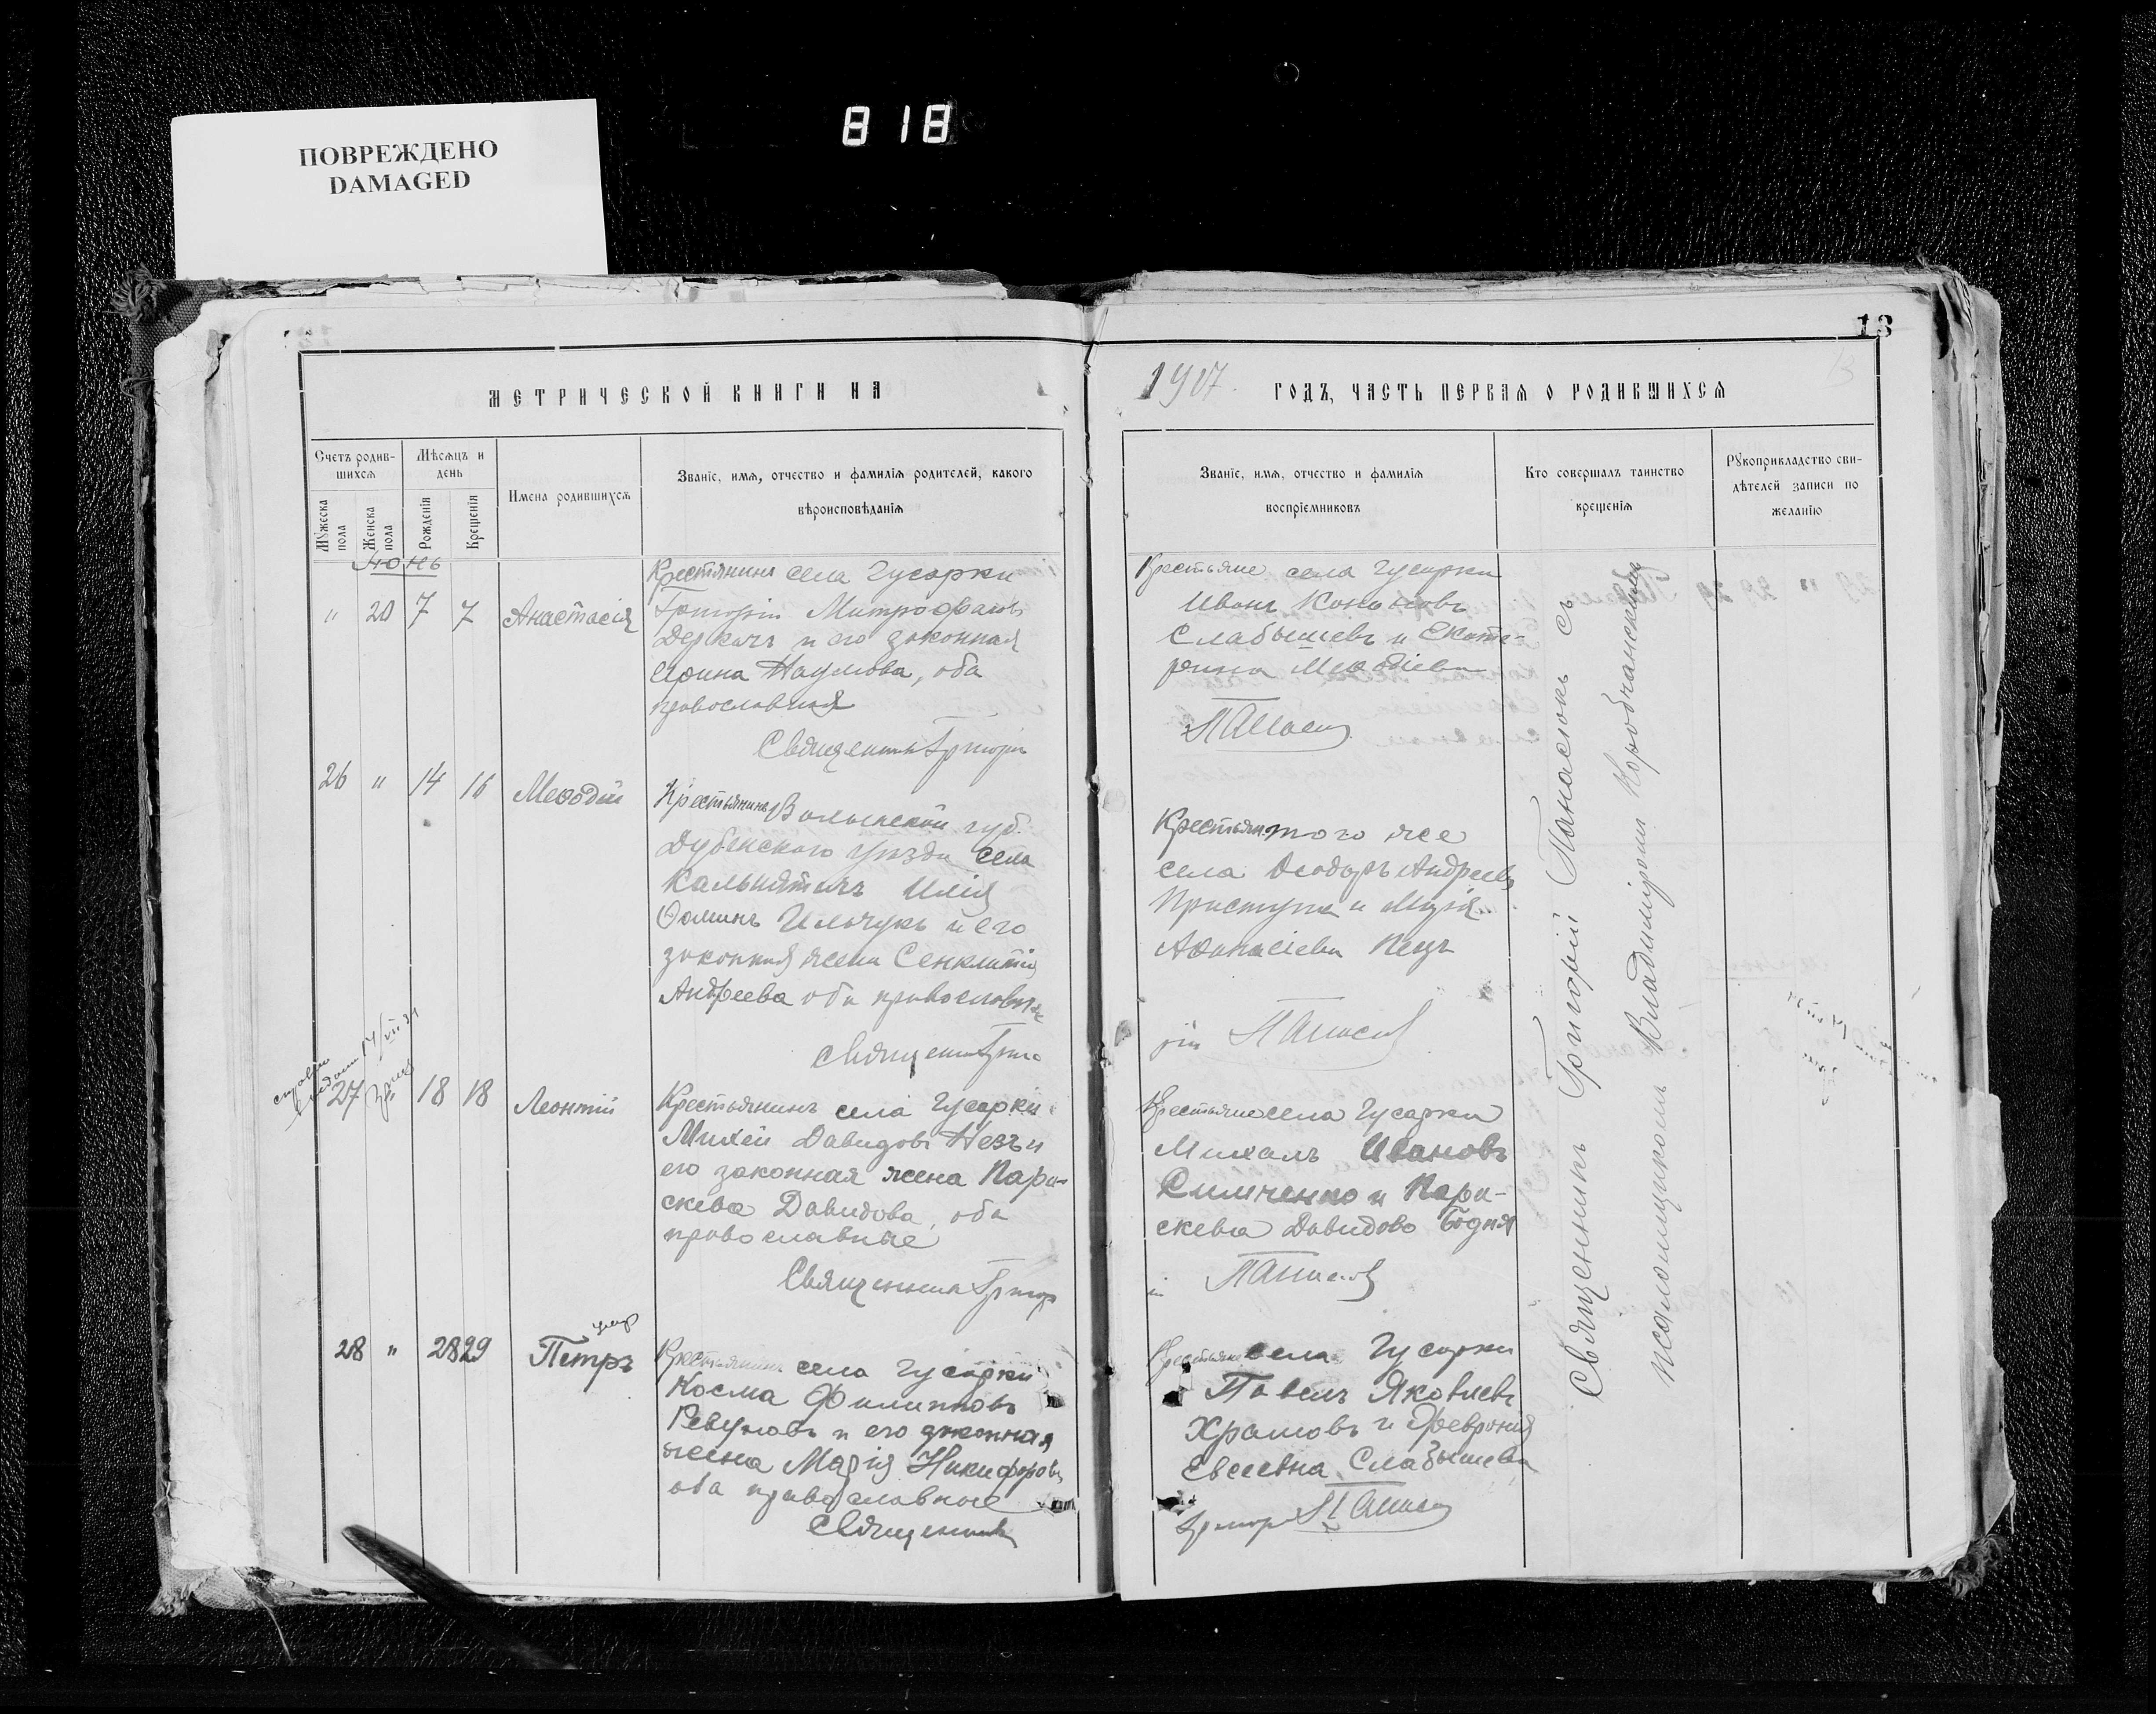 ПОВРЕЖДЕНО
DAMAGED
818
13
МЕТРИЧЕСКОЙ КНИГИ НА
1907. ГОДЪ, ЧАСТЬ ПЕРВАЯ О РОДИВШИХСЯ
13
Счетъ родив-
шихся
Мужеска
пола
Женска
пола
Мѣсяцъ и
день
Рожденія
Крещенія
Имена родившихся
Званіе, имя, отчество и фамилія родителей, какого
вѣроисповѣданія
Званіе, имя, отчество и фамилія
воспріемниковъ
Кто совершалъ таинство
крещенія
Рукоприкладство сви-
дѣтелей записи по
желанію
Іюнь
" 20 7 7 Анастасія
Крестянинъ села Гусарки
Григорій Митрофановъ
Деркачъ и его законная
Ирина Наумова, оба
православная
Священникъ Григорій
Крестьяне села Гусарки
Иванъ Кононовъ
Слабышевъ и Екате-
рина Меѳодіева
26 " 14 16 Меѳодій
Крестьянинъ Волынской губ.
Дубенскаго уѣзда села
Илія
Ѳоминъ Ильчукъ и его
законная жена Сенклитія
Андреева оба православные
Крестьян. того же
села Ѳеодоръ Андреевъ
Приступа и Марія
Аѳанасіева
рій
27 " 18 18 Леонтій
Крестьянинъ села Гусарки
Михей Давидовъ и
его законная жена Пара-
скева Давидова, оба
православные
Священникъ Григор
Крестьяне села Гусарки
Михаилъ Ивановъ
и Пара-
скева Давидова
ій
28 " 28 29 Петръ
умер
Крестьянинъ села Гусарки
Косма Филиповъ
Ревуновъ и его законная
жена Марія Никифорова
оба православные
Священникъ
Крестьяне села Гусарки
Павелъ Яковлевъ
Храмовъ и Февронія
Евсеевна Слабышева
Григорій
Священникъ Григорій Панасюкъ съ
псаломщикомъ Владиміромъ